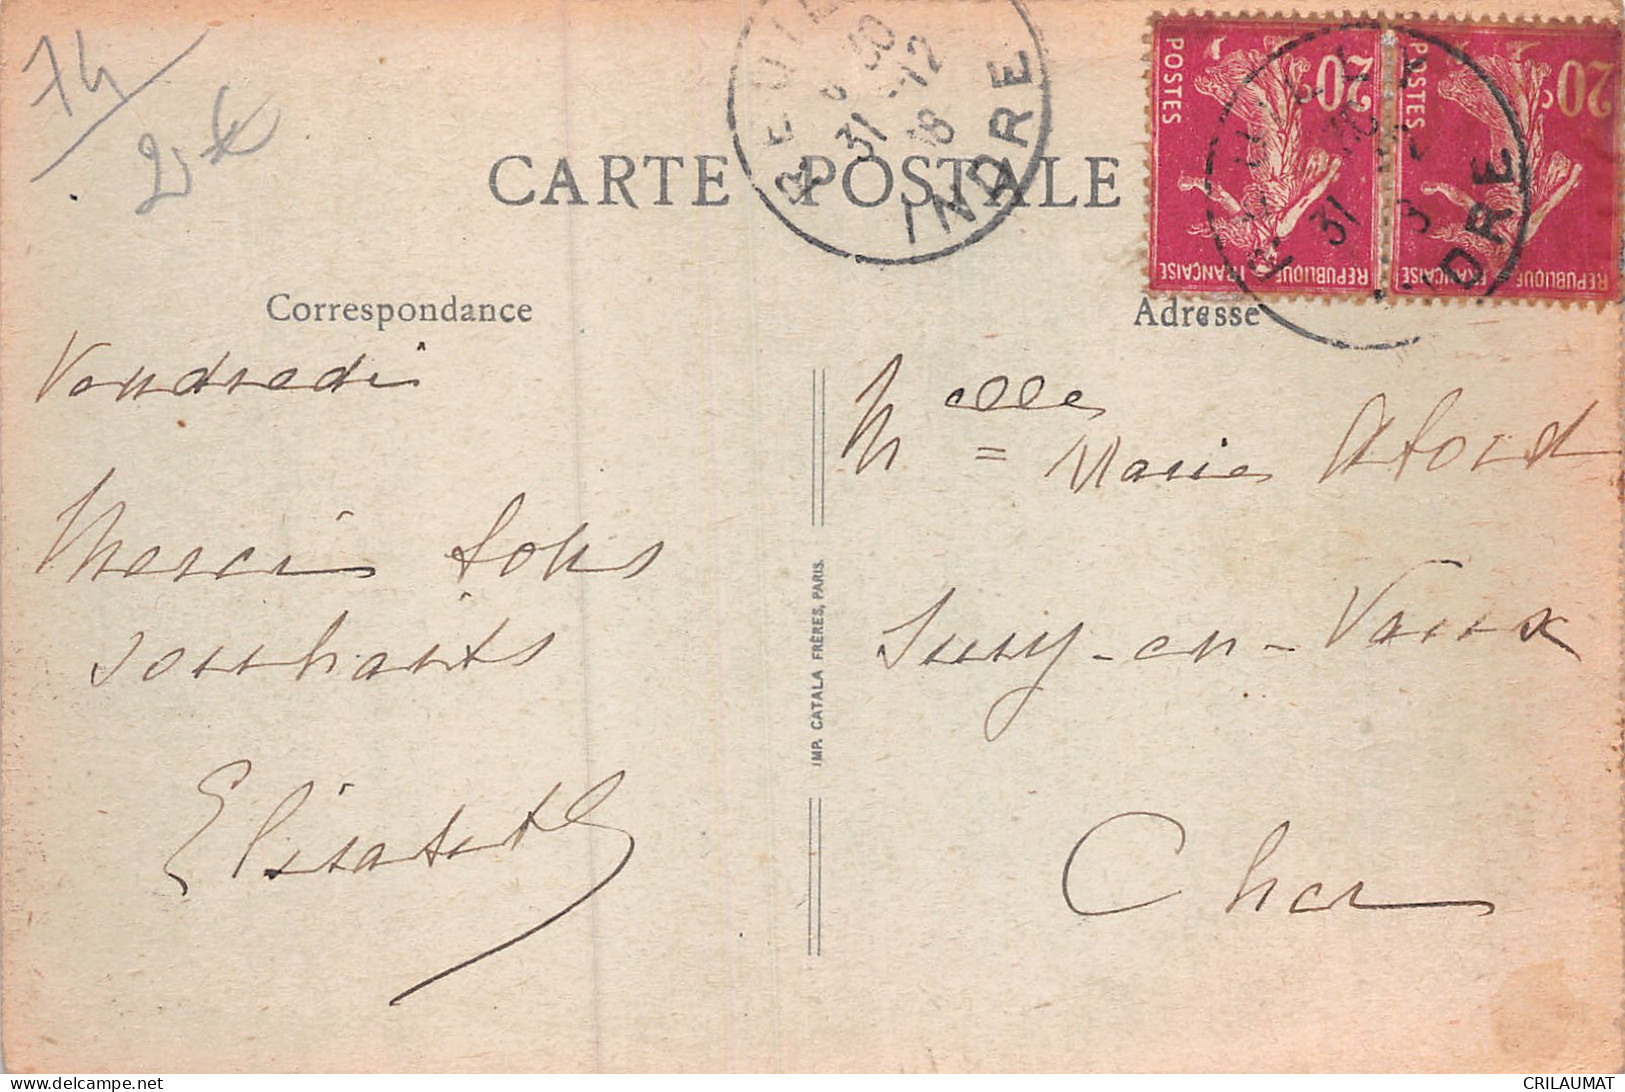 74
2€
CARTE POSTALE
REUILLY
31 -12
18
INDRE
POSTES
20c
REPUBLIQUE FRANÇAISE
POSTES
20c
REPUBLIQUE FRANÇAISE
31
INDRE
Correspondance
Vendredi
Merci tous
souhaits
Elisabeth
IMP. CATALA FRÈRES, PARIS.
Adresse
Melle Marie
Sury-en-Vaux
Cher
CRILAUMAT